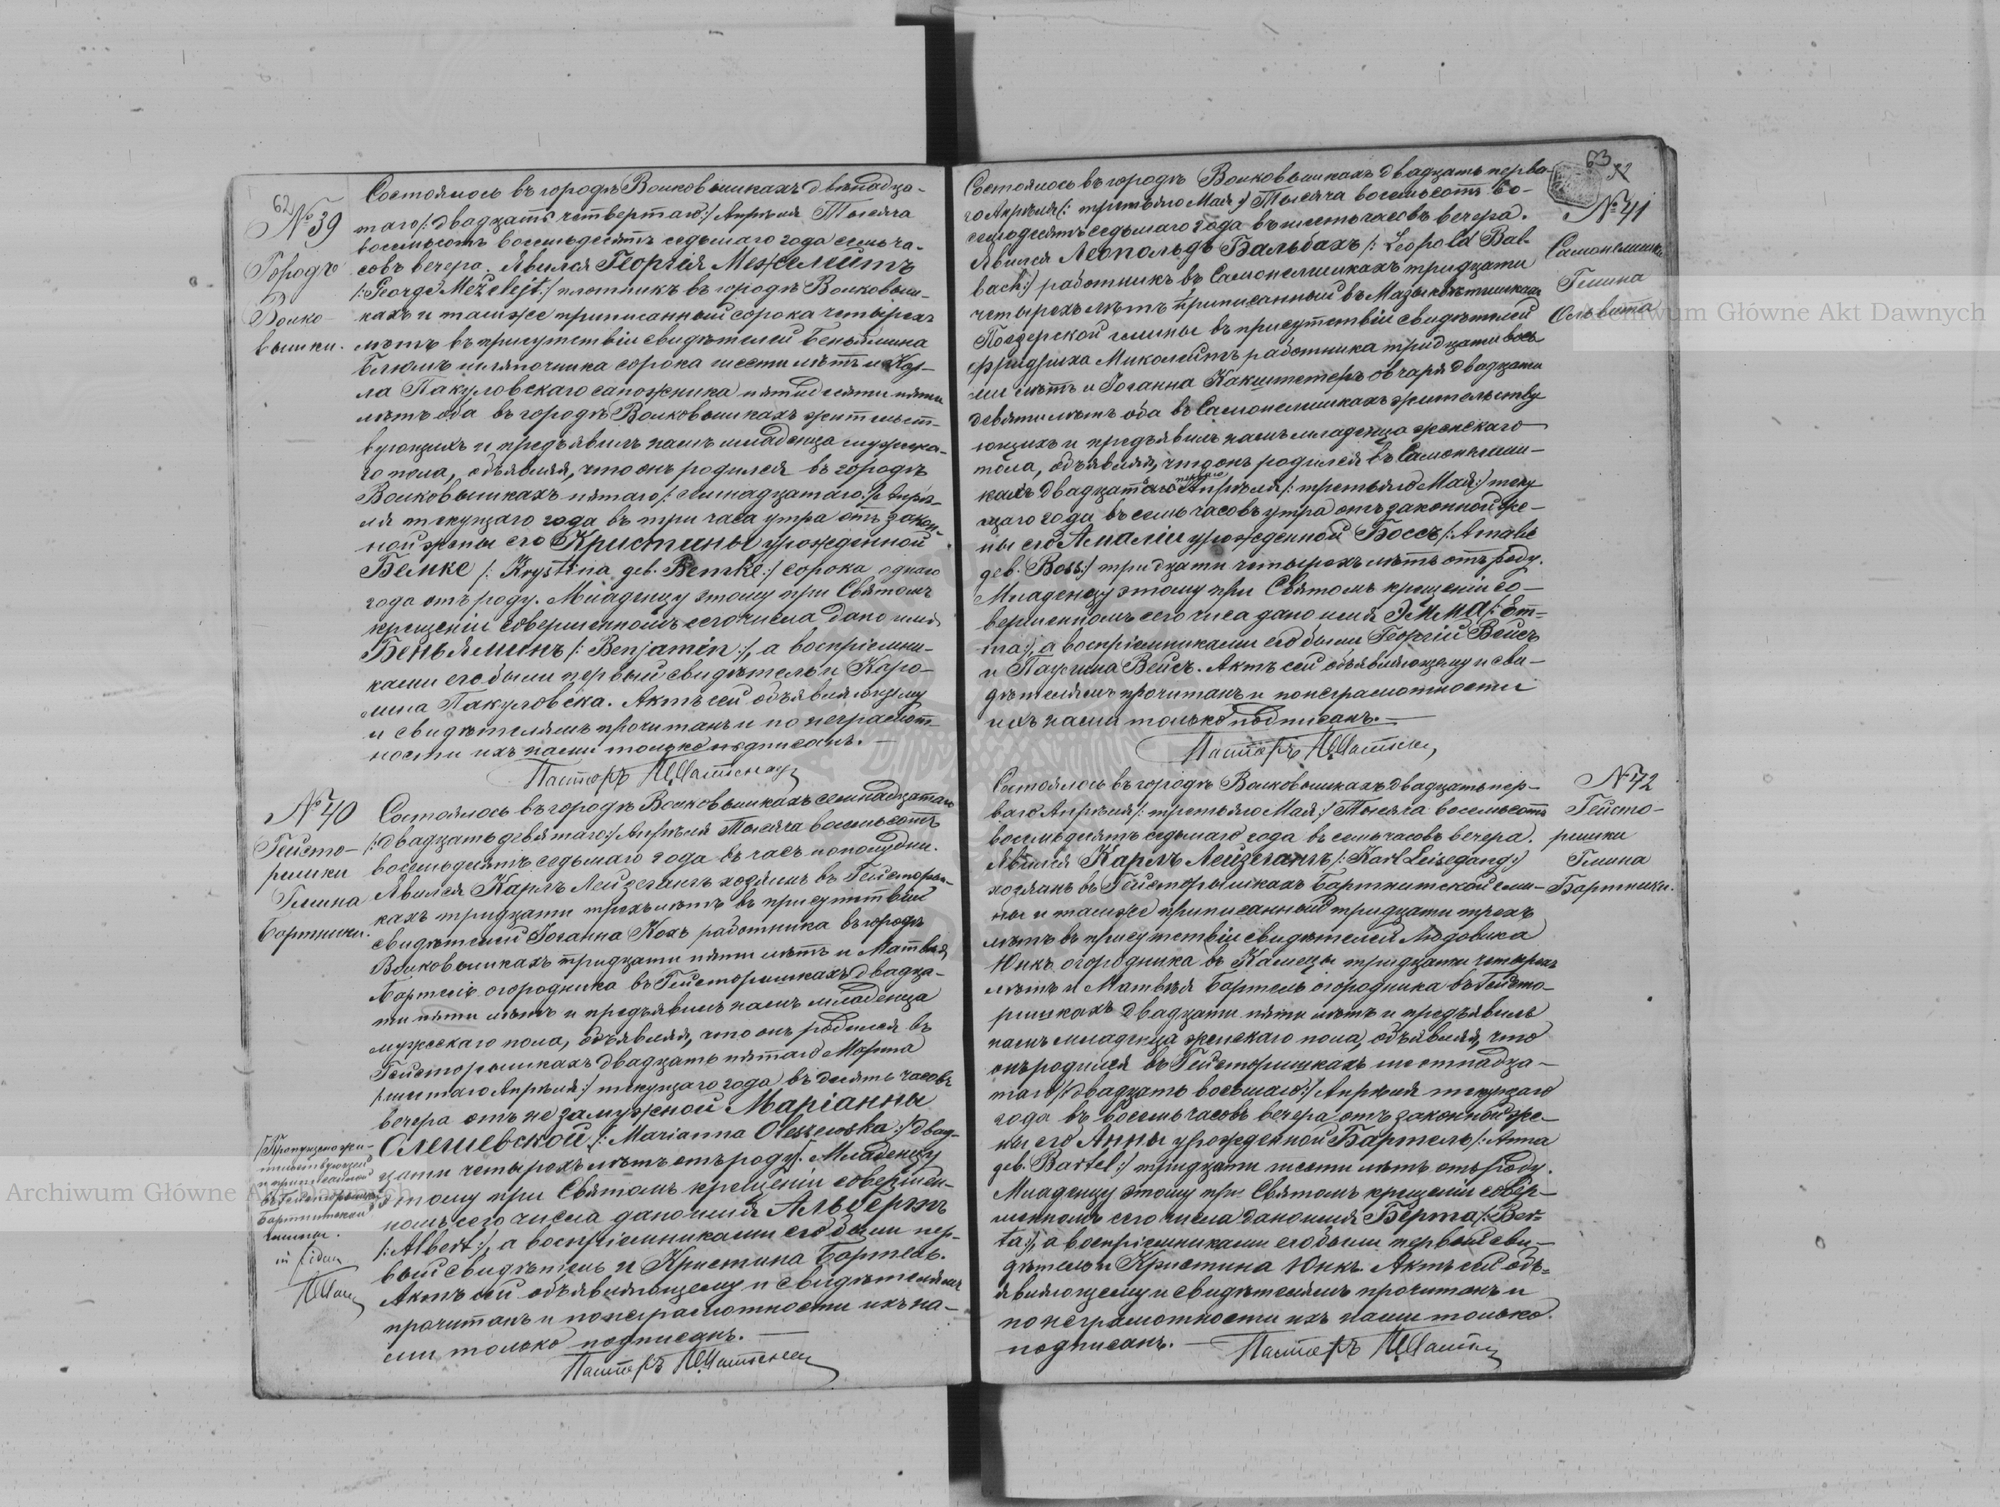 62
№ 39
Городъ
Волко-
вышки.
Состоялось въ городѣ Волковышкахъ двѣнадца-
таго /: двадцать четвертаго:/ Апрѣля Тысяча
восемьсотъ восемьдесятъ седьмаго года семь ча-
совъ вечера. Явился Георгій Межелейтъ
/: Georg Meželejt:/ плотникъ въ городѣ Волковыш-
кахъ и также приписанный сорока четырехъ
лѣтъ въ присутствіи свидѣтелей Беньямина
Блюмъ шляпочника сорока шести лѣтъ и Кар-
ла Пакуловскаго сапожника пятидесяти пяти
лѣтъ оба въ городѣ Волковышкахъ жительст-
вующихъ и предъявилъ намъ младенца мужска-
го пола, объявляя, что онъ родился въ городѣ
Волковышкахъ пятаго /: семнадцатаго:/ Апрѣ-
ля текущаго года въ три часа утра отъ закон-
ной жены его Кристины урожденной
Бемке /: Krystina дев. Bemke:/ сорока однаго
года отъ роду. Младенцу этому при Святомъ
крещеніи совершенномъ сего числа дано имя
Беньяминъ /: Benjamin:/, а воспріемни-
ками его были первый свидѣтель и Каро-
лина Пакуловска. Актъ сей объявляющему
и свидѣтелямъ прочитанъ и по неграмот-
ности ихъ нами только подписанъ. —
Пасторъ
№ 40
Гейсто-
ришки
Гмина
Бартники.
Состоялось въ городѣ Волковышкахъ семнадцатаго
/: двадцать девятаго:/ Апрѣля Тысяча восемьсотъ
восемьдесятъ седьмаго года въ часъ пополудни.
Явился Карлъ Лейзегангъ хозяинъ въ Гейсториш-
кахъ тридцати трехъ лѣтъ въ присутствіи
свидѣтелей Іоганна Кохъ работника въ городѣ
Волковышкахъ тридцати пяти лѣтъ и Матвѣя
Бартель огородника въ Гейсторишкахъ двадца-
ти пяти лѣтъ и предъявилъ намъ младенца
мужескаго пола, объявляя, что онъ родился въ
Гейсторишкахъ двадцать пятаго Марта
/: шестаго Апрѣля:/ текущаго года въ десять часовъ
вечера отъ незамужной Маріанны
Олешевской /: Marianna Oleszewska:/ двад-
цати четырехъ лѣтъ отъ роду. Младенцу
этому при Святомъ крещеніи совершен-
номъ сего числа дано имя Альбертъ
/: Albert:/, а воспріемниками его были пер-
вый свидѣтель и Кристина Бартель.
Актъ сей объявляющему и свидѣтелямъ
прочитанъ и по неграмотности ихъ на-
ми только подписанъ. —
Пасторъ
Пропущено жи-
тельствующей
и приписанной
въ Гейсторишкахъ
Бартникской
гмины.
in fidem
63
№ 41
Гмина
Ольвита
Состоялось въ городѣ Волковышкахъ двадцать перва-
го Апрѣля /: третьяго Мая:/ Тысяча восемьсотъ во-
семьдесятъ седьмаго года въ шесть часовъ вечера.
Явился Леопольдъ Бальбахъ /: Leopold Bal-
bach:/ работникъ въ тридцати
четырехъ лѣтъ приписанный въ
гмины въ присутствіи свидѣтелей
Фридриха Миколейтъ работника тридцати вось-
ми лѣтъ и Іоганна Какштетеръ овчаря двадцати
девяти лѣтъ оба въ жительству-
ющихъ и предъявилъ намъ младенца женскаго
пола, объявляя, что онъ родился въ
кахъ двадцать перваго Апрѣля /: третьяго Мая:/ теку-
щаго года въ семь часовъ утра отъ законной же-
ны его Амаліи урожденной Боссъ /: Amalie
дев. Boss:/ тридцати четырехъ лѣтъ отъ роду.
Младенцу этому при Святомъ крещеніи со-
вершенномъ сего числа дано имя Эмма /: Em-
ma:/, а воспріемниками его были Георгій Вейсъ
и Паулина Вейсъ. Актъ сей объявляющему и сви-
дѣтелямъ прочитанъ и по неграмотности
ихъ нами только подписанъ. —
Пасторъ
№ 42
Гейсто-
ришки
Гмина
Бартники.
Состоялось въ городѣ Волковышкахъ двадцать пер-
ваго Апрѣля /: третьяго Мая:/ Тысяча восемьсотъ
восемьдесятъ седьмаго года въ семь часовъ вечера.
Явился Карлъ Лейзегангъ /: Karl Leisegang:/
хозяинъ въ Гейсторишкахъ Бартникской гми-
ны и также приписанный тридцати трехъ
лѣтъ въ присутствіи свидѣтелей Людовика
Юнкъ огородника въ тридцати четырехъ
лѣтъ и Матвѣя Бартель огородника въ Гейсто-
ришкахъ двадцати пяти лѣтъ и предъявилъ
намъ младенца женскаго пола, объявляя, что
онъ родился въ Гейсторишкахъ шестнадца-
таго /: двадцать восьмаго:/ Апрѣля текущаго
года въ восемь часовъ вечера отъ законной же-
ны его Анны урожденной Бартель /: Anna
дев. Bartel:/ тридцати шести лѣтъ отъ роду.
Младенцу этому при Святомъ крещеніи совер-
шенномъ сего числа дано имя Берта /: Ber-
ta:/, а воспріемниками его были первый сви-
дѣтель и Кристина Юнкъ. Актъ сей объ-
являющему и свидѣтелямъ прочитанъ и
по неграмотности ихъ нами только
подписанъ. —
Пасторъ
Archiwum Główne Akt Dawnych
Archiwum Główne